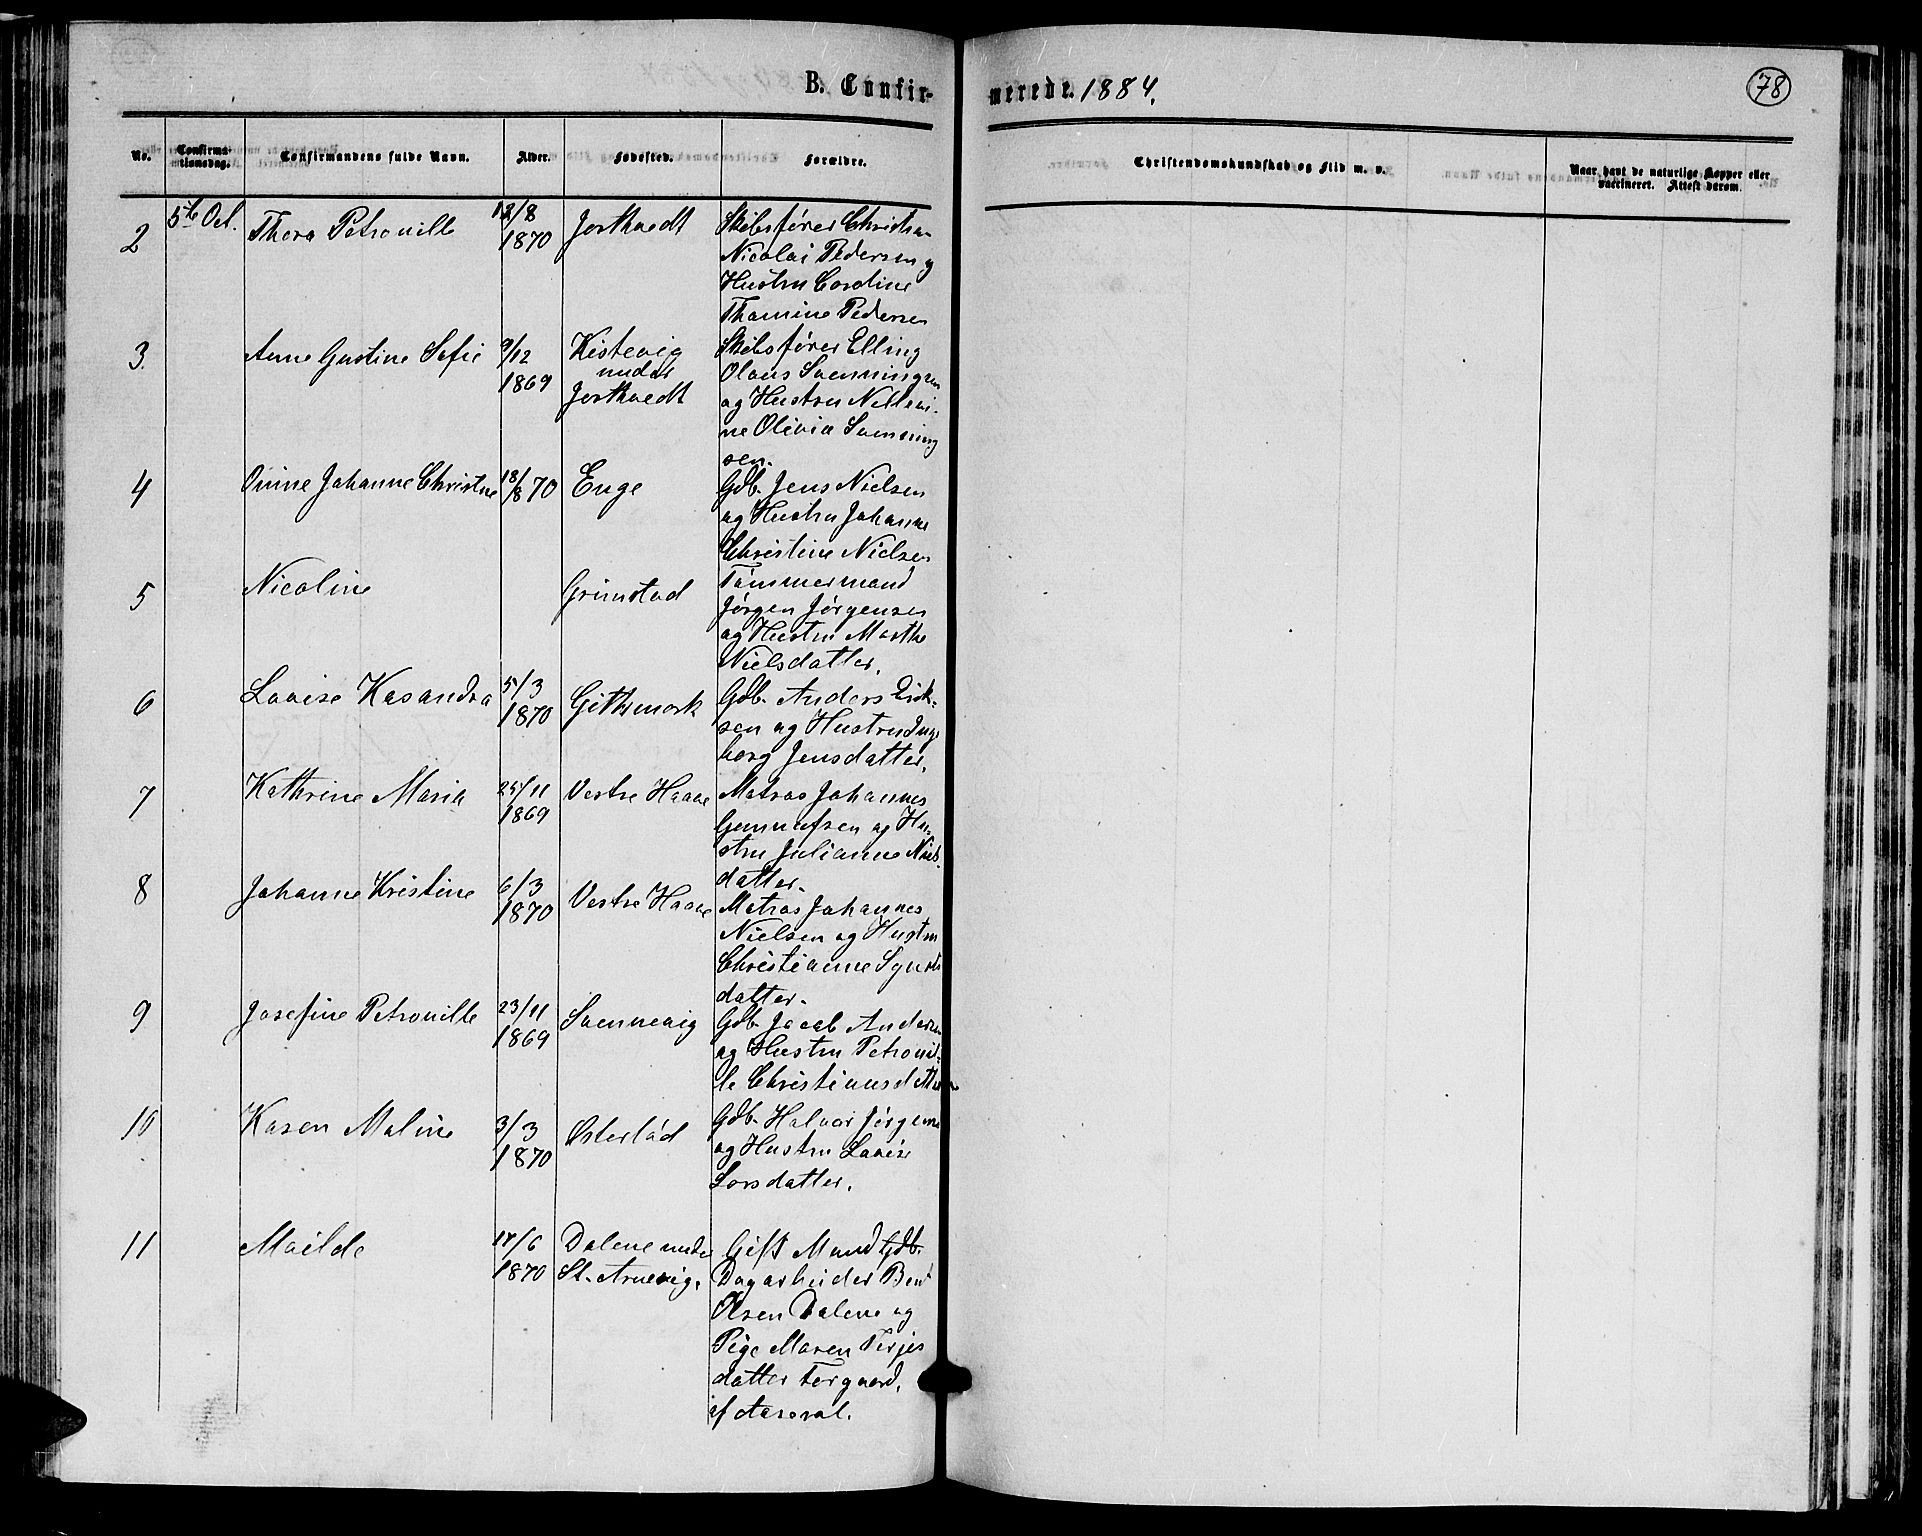 B. Confir-
merede. 1884.
78
No.
Confirma-
tionsdag.
Confirmandens fulde Navn.
Alder.
Fødested.
Forældre.
Christendomskundskab og Flid m. v.
Naar havt de naturlige Kopper eller
vaccineret. Attest derom.
2
5te Oct.
Thora Petronille
12/8
1870
Jortkvedt
Skibsfører Christian
Nicolai Pedersen og
Hustru Cardine
Thomine Pedersen
3.
Anne Gustine Sofie
9/12
1869
Kistevig
under
Jortkvedt
Skibsfører Elling
Olaus Svenningsen
ag Hustru Nillevi-
ne Olivia Svenning
sen.
4
Onine Johanne Christine
18/8 70
Enge
Gdb. Jens Nielsen
ag Hustru Johanne
Christine Nielsen
5
Nicoline
Grimstad
Tømmermand
Jørgen Jørgensen
ag Hustru Marthe
Nielsdatter.
6
Lovise Kasandra
5/3
1870
Githmark
Gdb. Anders Erik-
sen ag Hustru Inge
borg Jensdatter.
7
Kathrine Maria
25/11
1869
Vestre Haave
Matros Johannes
Gunnufsen ag Hu-
stru Julianne Niels-
datter.
8
Johanne Kristine
6/3
1870
Vestre Haave
Matros Johannes
Nielsen ag Hustru
Christianne
datter.
9
Josefine Petronille
23/11
1869
Svennevig
Gdb. Jacob Andersen
ag Hustru Petronil-
le Christiansdatter
10
Karen Maline
3/3
1870
Østerlød
Gdb. Halvor Jørgensen
ag Hustru Lovise
Larsdatter.
11
Matilde
17/6
1870
Dalene under
St. Aruevig.
Gift Mand Gdb.
Dagarbeider Bent
Olsen Dalene og
Pige Maren Terjes
datter Torgaard,
af Aaseral.